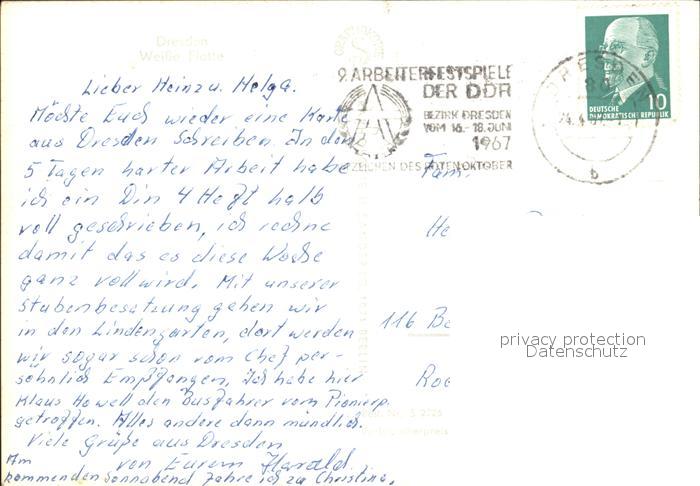 Dresden
Weiße Flotte
Lieber Heinz u. Helga.
Möchte Euch wieder eine Karte
aus Dresden schreiben. In den
5 Tagen harter Arbeit habe
ich ein Din 4 Heft halb
voll geschrieben, ich rechne
damit das es diese Woche
ganz voll wird. Mit unserer
Stubenbesetzung gehen wir
in den Lindengarten, dort werden
wir sogar schon vom Chef per-
söhnlich Empfangen, Ich habe hier
Klaus Howell den Busfahrer vom Pionierp.
getroffen. Alles andere dann mündlich.
Viele Grüße aus Dresden
von Eurem Harald.
Am
kommenden Sonnabend fahre ich zu Christina.
9. ARBEITERFESTSPIELE
DER DDR
BEZIRK DRESDEN
VOM 16.-18. JUNI
1967
ZEICHEN DES ROTEN OKTOBER
DRESDEN
b
DEUTSCHE
DEMOKRATISCHE REPUBLIK
10
Fam.
He
116 Be
Roe
privacy protection
Datenschutz